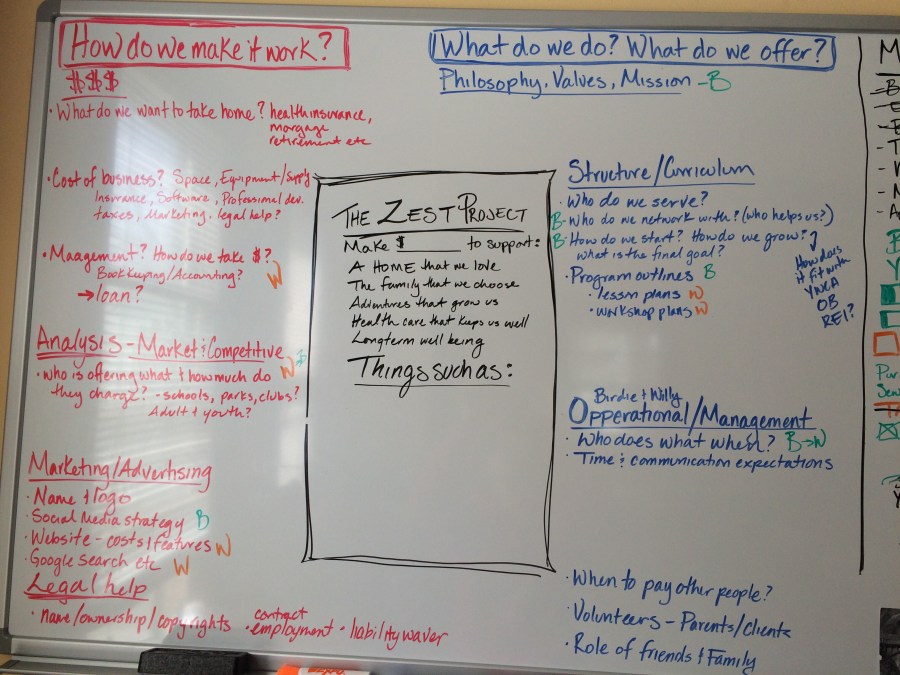 How do we make it work?
$$$
· What do we want to take home? health insurance,
morgage
retirement etc
· Cost of business? Space, Equipment/Supply
Insurance, Software, Professional dev.
taxes, Marketing, legal help?
· Maagement? How do we take $?
Bookkeeping/Accounting? W
→ loan?
Analysis - Market & Competitive
· who is offering what & how much do W
they charge? - schools, parks, clubs?
Adult & youth?
Marketing/Advertising
· Name & logo
· Social Media strategy B
· Website - costs/features W
· Google search etc W
Legal help
· name/ownership/copyrights · contract employment · liability waver
THE ZEST PROJECT
Make $______ to support:
A HOME that we love
The family that we choose
Adventures that grow us
Health care that keeps us well
Longterm well being
Things such as:
What do we do? What do we offer?
Philosophy, Values, Mission - B
Structure/Curriculum
· Who do we serve?
B - Who do we network with? (who helps us?)
B · How do we start? How do we grow?
what is the final goal?
How does
it fit with
YMCA
OB
REI?
· Program outlines B
· lesson plans W
· workshop plans W
Birdie & Willy
Opperational/Management
· Who does what when? B→W
· Time & communication expectations
· When to pay other people?
· Volunteers - Parents/clients
· Role of friends & Family